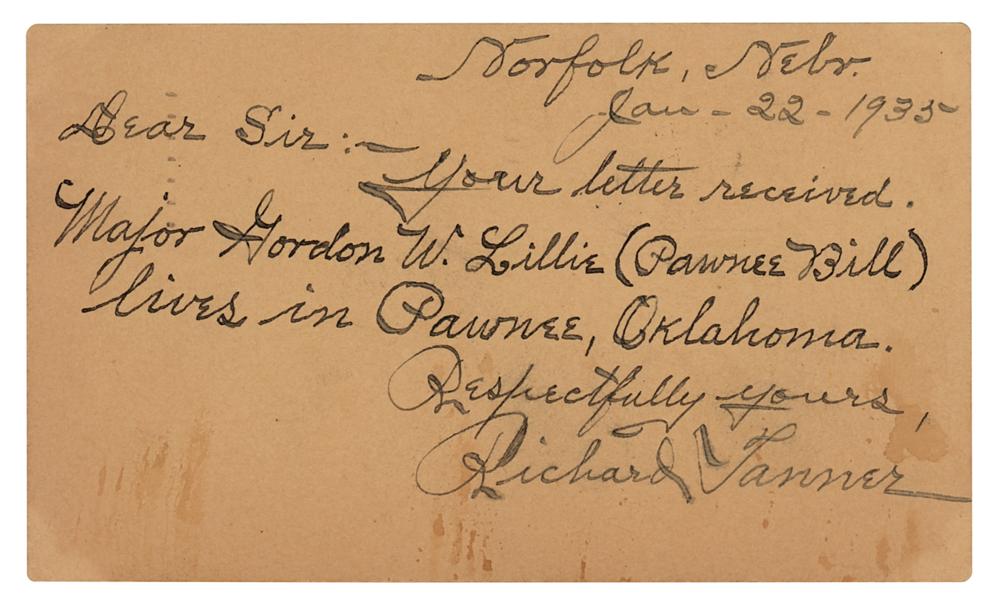 Norfolk, Nebr.
Jan - 22 - 1935
Dear Sir:-
Your letter received.
Major Gordon W. Lillie (Pawnee Bill)
lives in Pawnee, Oklahoma.
Respectfully yours,
Richard Tanner